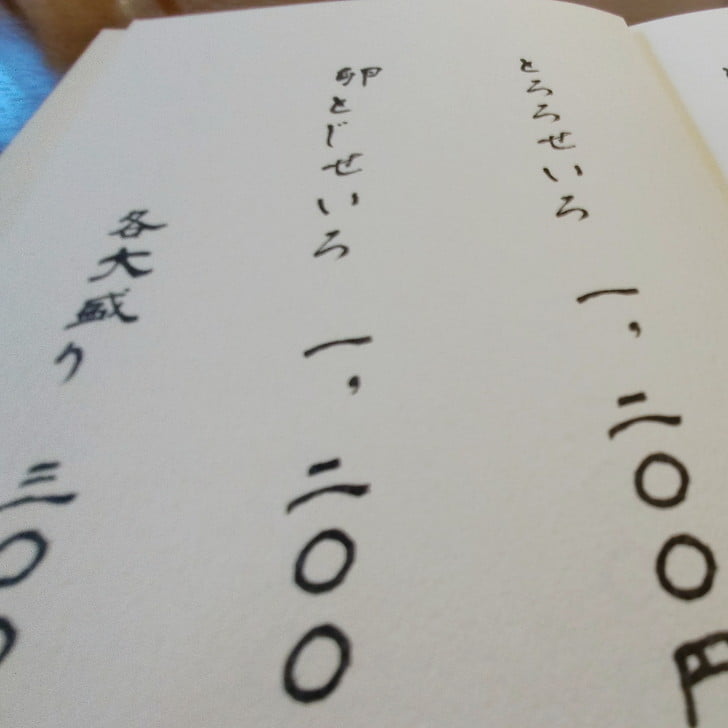 とろろせいろ 一,二〇〇円
卵とじせいろ 一,二〇〇
各大盛り 三〇〇